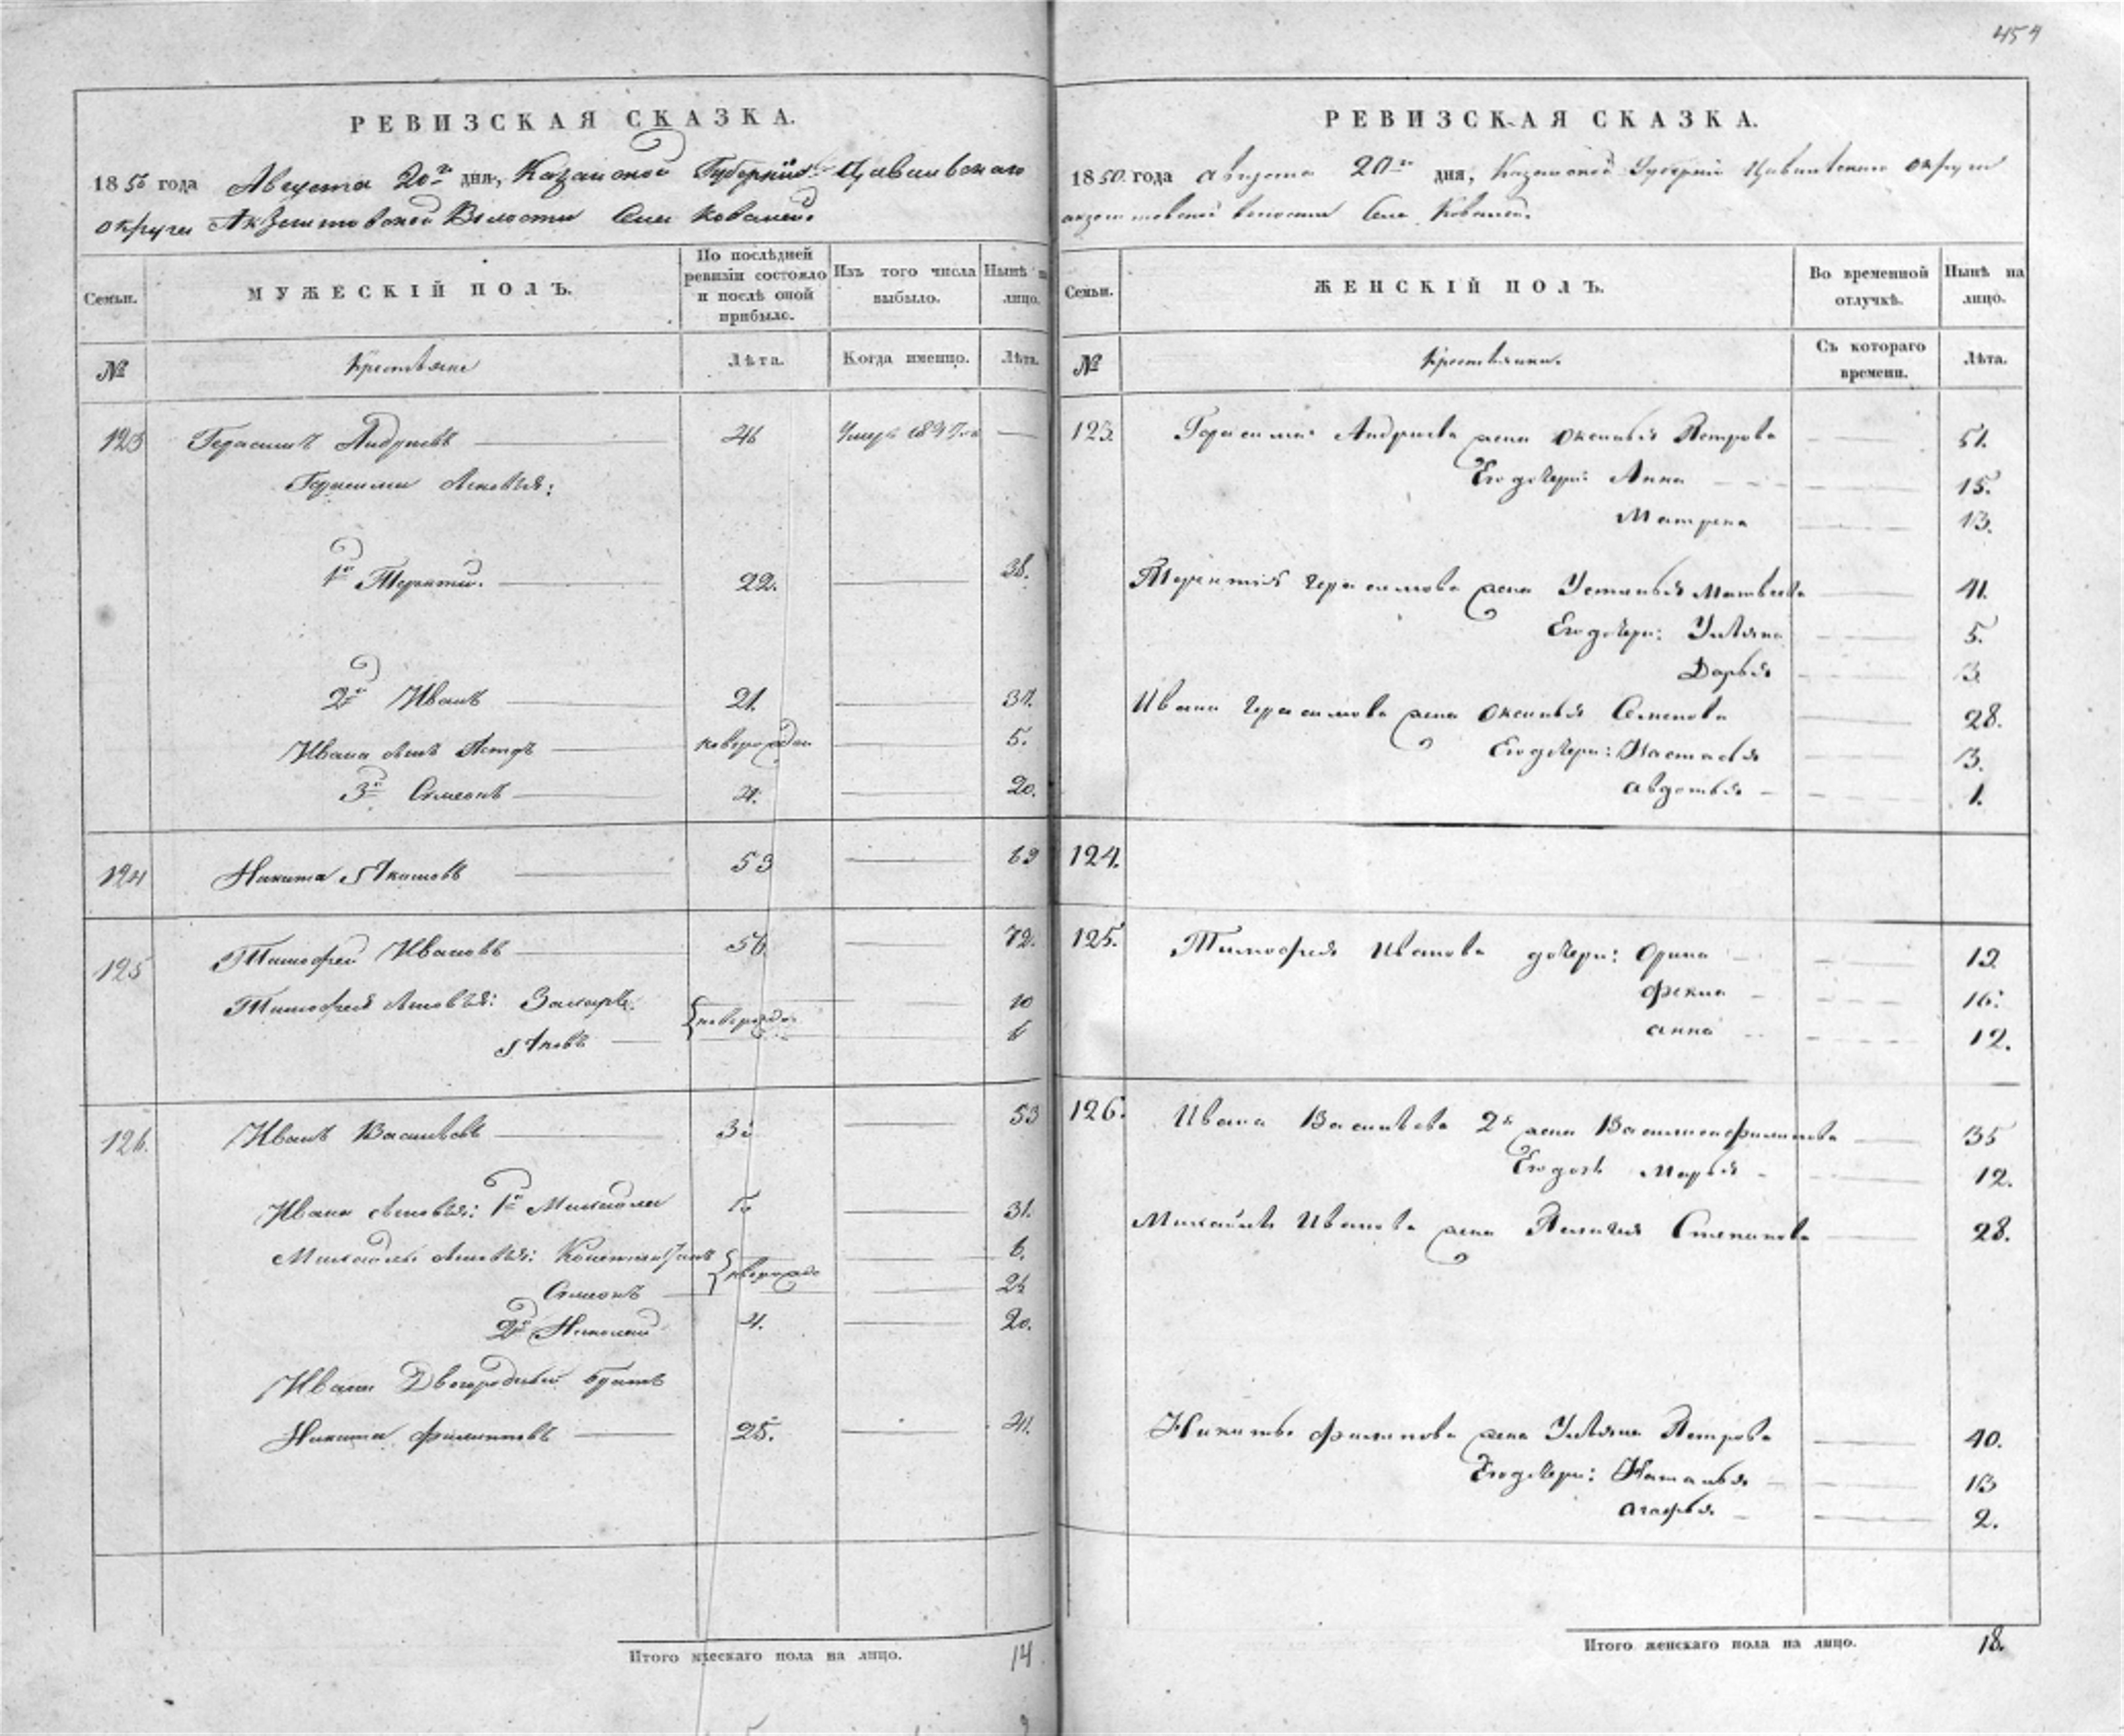 454
РЕВИЗСКАЯ СКАЗКА.
1850 года Августа 20го дня, Казанской Губернии Цивильскаго
округи Акзегитовской Волости Села Ковалей.
Семьи.
МУЖЕСКІЙ ПОЛЪ.
По послѣдней ревизіи состояло и послѣ оной прибыло.
Изъ того числа выбыло.
Нынѣ на лицо.
№
Крестьяне
Лѣта.
Когда именно.
Лѣта.
123 Герасимъ Андреевъ 46 Умеръ 1847го
Герасима сыновья:
1й Терентий. 22. 38.
2й Иванъ 21. 37.
Ивана сынъ Петръ новорожден 5.
3й Симеонъ 4. 20.
124 Никита Якимовъ 53 69
125 Тимофей Ивановъ 56 72.
Тимофея сыновья: Захаръ новорожде 10
Яковъ 6
126. Иванъ Васильевъ 53
Ивана сыновья: 1й Михайла 31.
Михайлы сыновья: Константинъ новорожде 6.
Симеонъ
2й Николай 4. 20.
Ивана Двоюродный братъ
Никита Филиповъ 25. 41.
Итого мужескаго пола на лицо. 14
РЕВИЗСКАЯ СКАЗКА.
1850 года августа 20го дня, Казанской Губерніи Цивильскаго округи
акзегитовской волости Села Ковалей.
Семьи.
ЖЕНСКІЙ ПОЛЪ.
Во временной отлучкѣ.
Нынѣ на лицо.
№
Крестьянки.
Съ котораго времени.
Лѣта.
123. Герасима Андреева жена Оксинья Петрова 51.
Его дочери: Анна 15.
Матрена 13.
Терентия Герасимова жена Устинья Матвеева 41.
Его дочери: Ульяна 5.
Дарья 3.
Ивана Герасимова жена Оксинья Семенова 28.
Его дочери: Настасья 3.
Авдотья 1.
124.
125. Тимофея Иванова дочери: Орина 19
Фекла 16.
анна 12.
126. Ивана Васильева 2я жена Василиса Филипова 35
Его дочь Марья 12.
Михайлы Иванова жена Пелагея Степанова 28.
Никиты Филипова жена Ульяна Петрова 40.
Его дочери: Наталья 13
агафья 2.
Итого женскаго пола на лицо. 18.